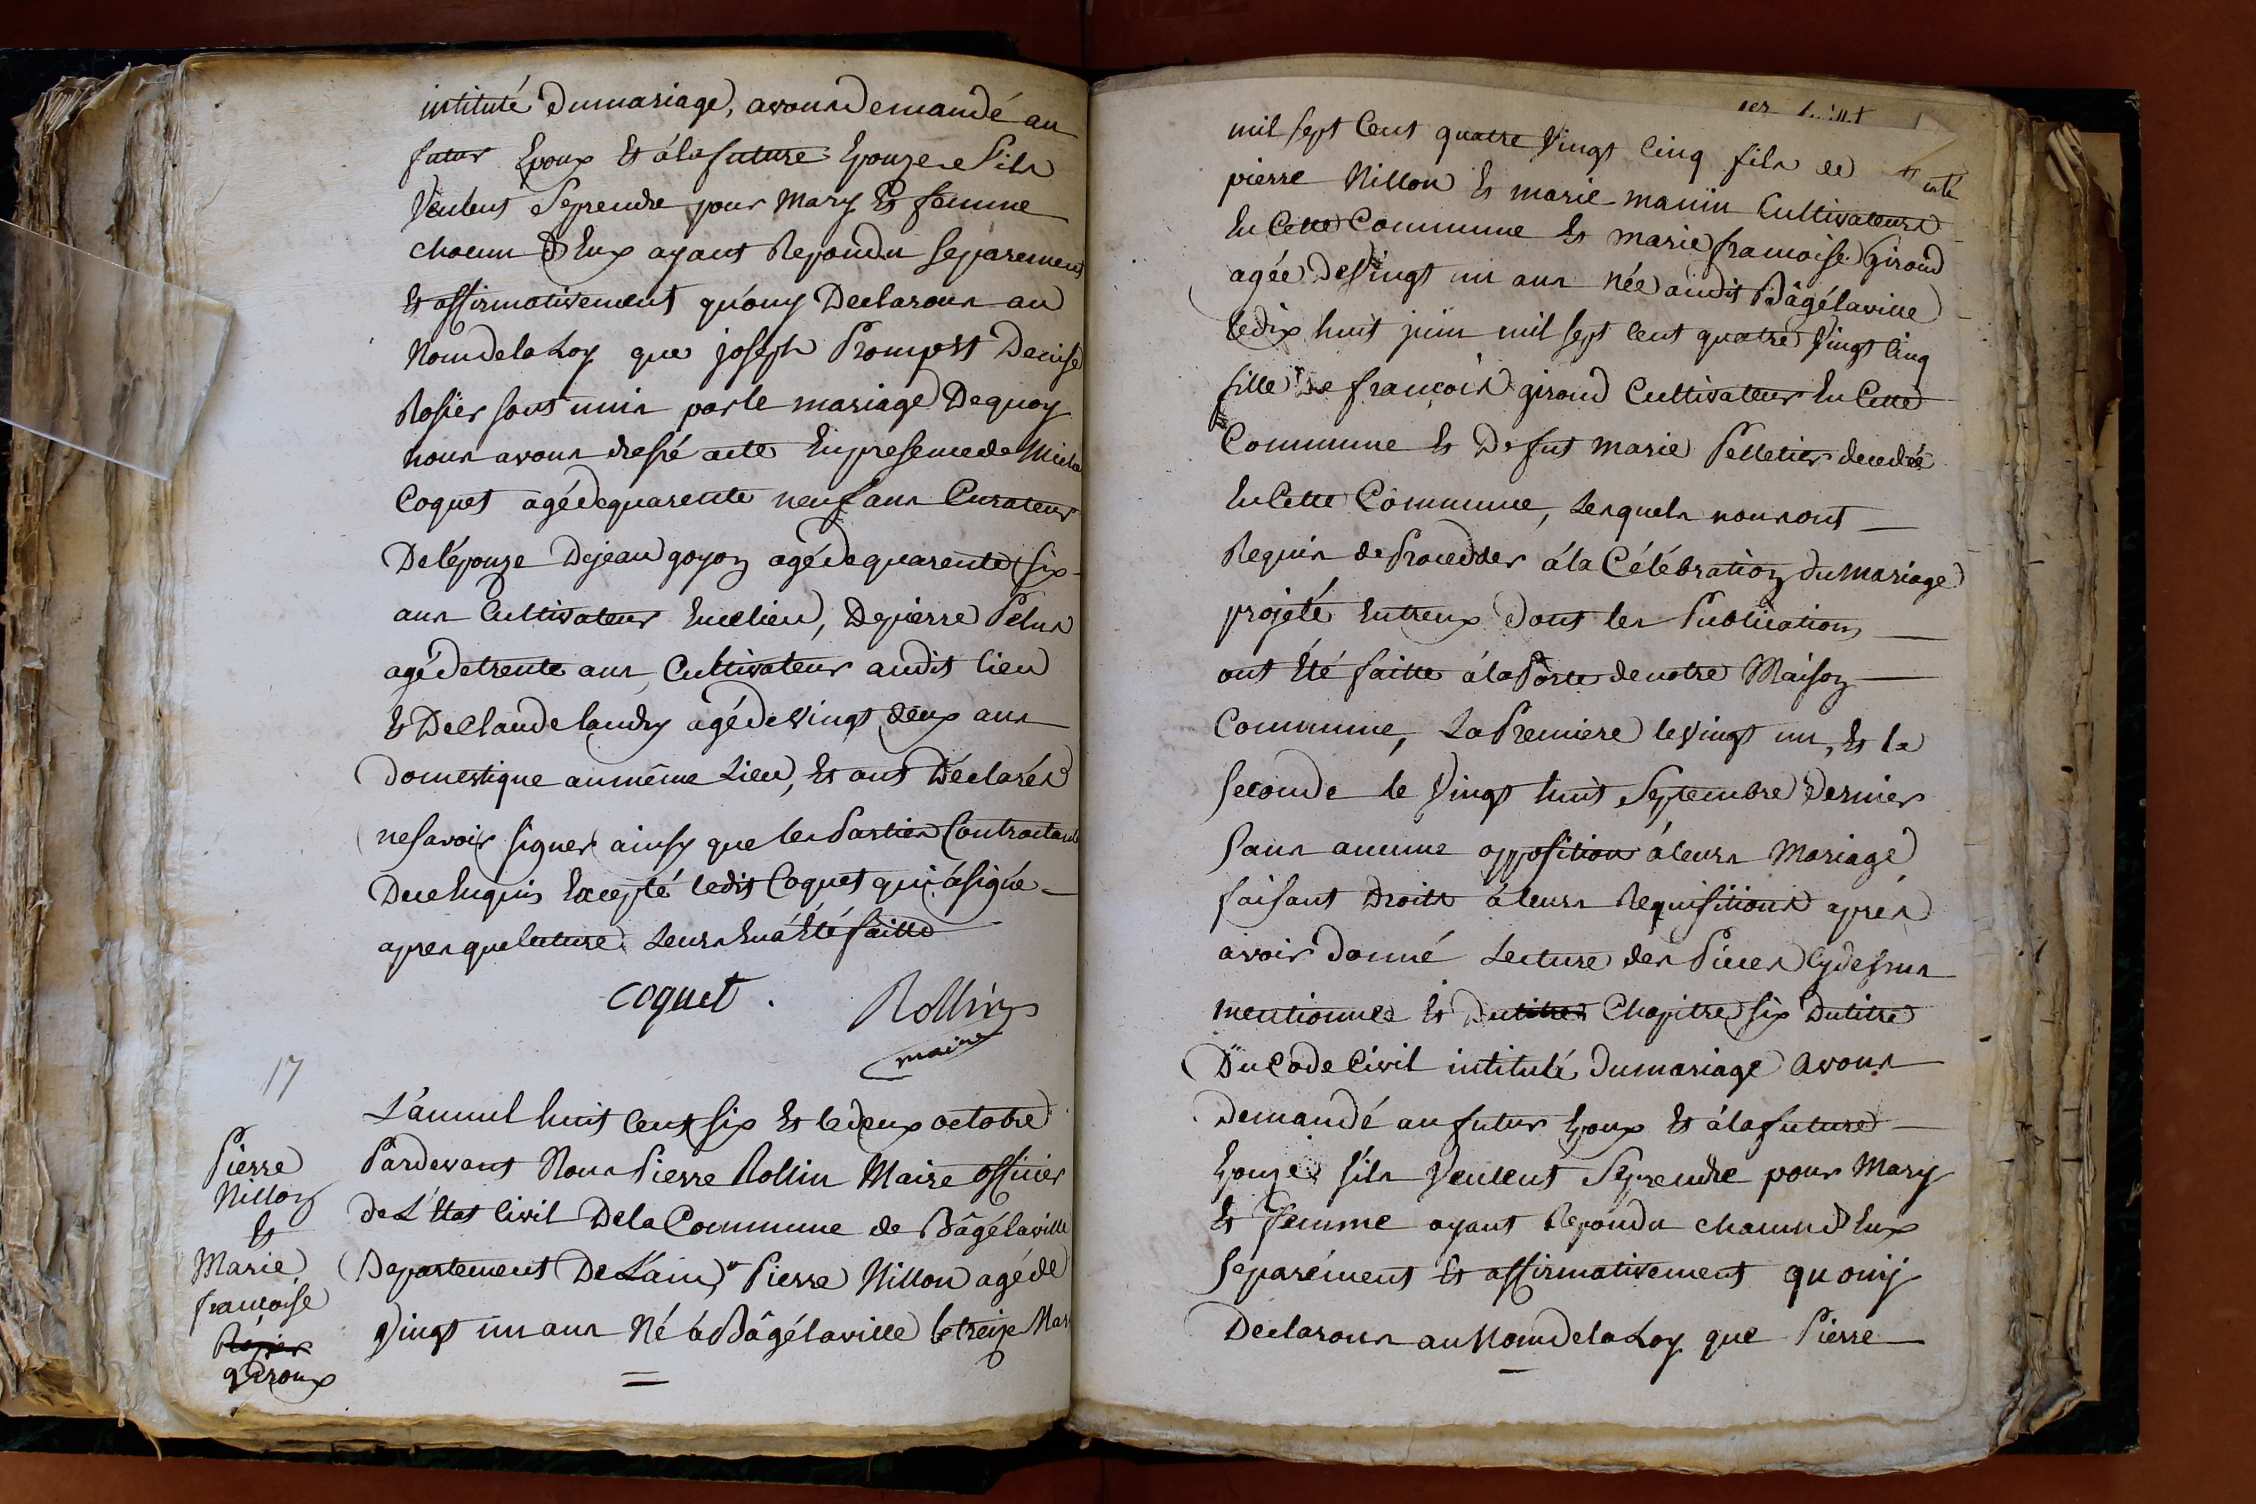 intitulé Dumariage, avons Demandé au
futur Epoux Et álafuture Epouze S'ils
Veulent Seprendre pour Mary Et femme
chacun D'Eux ayant Repondu separement
Et affirmativement qu'ouy Declarons au
Nom de la Loy que joseph Prompst Denise
Rosier sont unis par le mariage Dequoy
nous avons dressé acte En presence de Michel
Coquet agé de quarente neuf ans Curateur
De l'épouze De jean goyon agé de quarente six
ans Cultivateur En ce lieu, De pierre Pelus
agé de trente ans Cultivateur audit lieu
Et De Claude landry agé de Vingt deux ans
Domestique au même Lieu, Et ont Déclarés
ne savoir signer ainsy que les Parties Contractantes
De ce Enquis Excepté ledit Coquet qui á signé
apres que lecture Leurs En á Eté faitte
coquet .
Rollin
maire
17
Pierre
Nillon
Et
Marie
francoise
Rosier
giroux
L'an mil huit Cent six Et le deux octobre
Pardevant Nous Pierre Rollin Maire officier
de L'Etat Civil De la Commune de Bâgélaville
Departement De L'ain, Pierre Nillon agé de
Vingt un ans Né á Bâgélaville le treize Mars
mil sept Cent quatre Vingt Cinq fils de
pierre Nillon Et marie manin Cultivateurs
En Cette Commune Et Marie francoise Giroud
agée de Vingt un ans Née audit Bâgélaville
le dix huit juin mil sept Cent quatre Vingt Cinq
fille de françois giroud Cultivateur En Cette
Commune Et Defut Marie Pelletier decedée
En Cette Commune, Lesquels nous ont
Requis de Proceder á la Célébration du Mariage
projeté Entreux dont les Publications
ont Eté faitte á la Porte de notre Maison
Commune, La Premiere le Vingt un, Et la
seconde le Vingt huit Septembre Dernier
Sans aucune opposition á leurs Mariage
faisant Droitt á leurs Requisitions aprés
avoir Donné Lecture des Pieces Cy dessus
mentionnée Et Du titre Chapitre six Du titre
Du Code Civil intitulé Du mariage avons
Demandé au futur Epoux Et á la future
Epouze s'ils Veulent Se prendre pour Mary
Et Femme ayant Repondu chacun d'Eux
separément Et affirmativement qu'ouij
Declarons au Nom de la Loy que Pierre